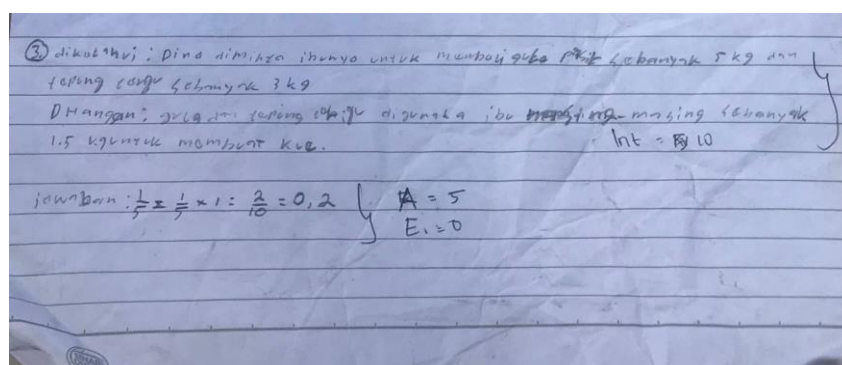 ③ diketahui : Dina diminta ibunya untuk membeli gula sebanyak 5 kg dan
tepung terigu sebanyak 3 kg
gula dan tepung terigu digunaka ibu masing-masing sebanyak
1.5 kg untuk membuat kue.
Int = 10
jawaban : 1/5 = 1/5 × 1 = 2/10 = 0,2
A = 5
E. = 0